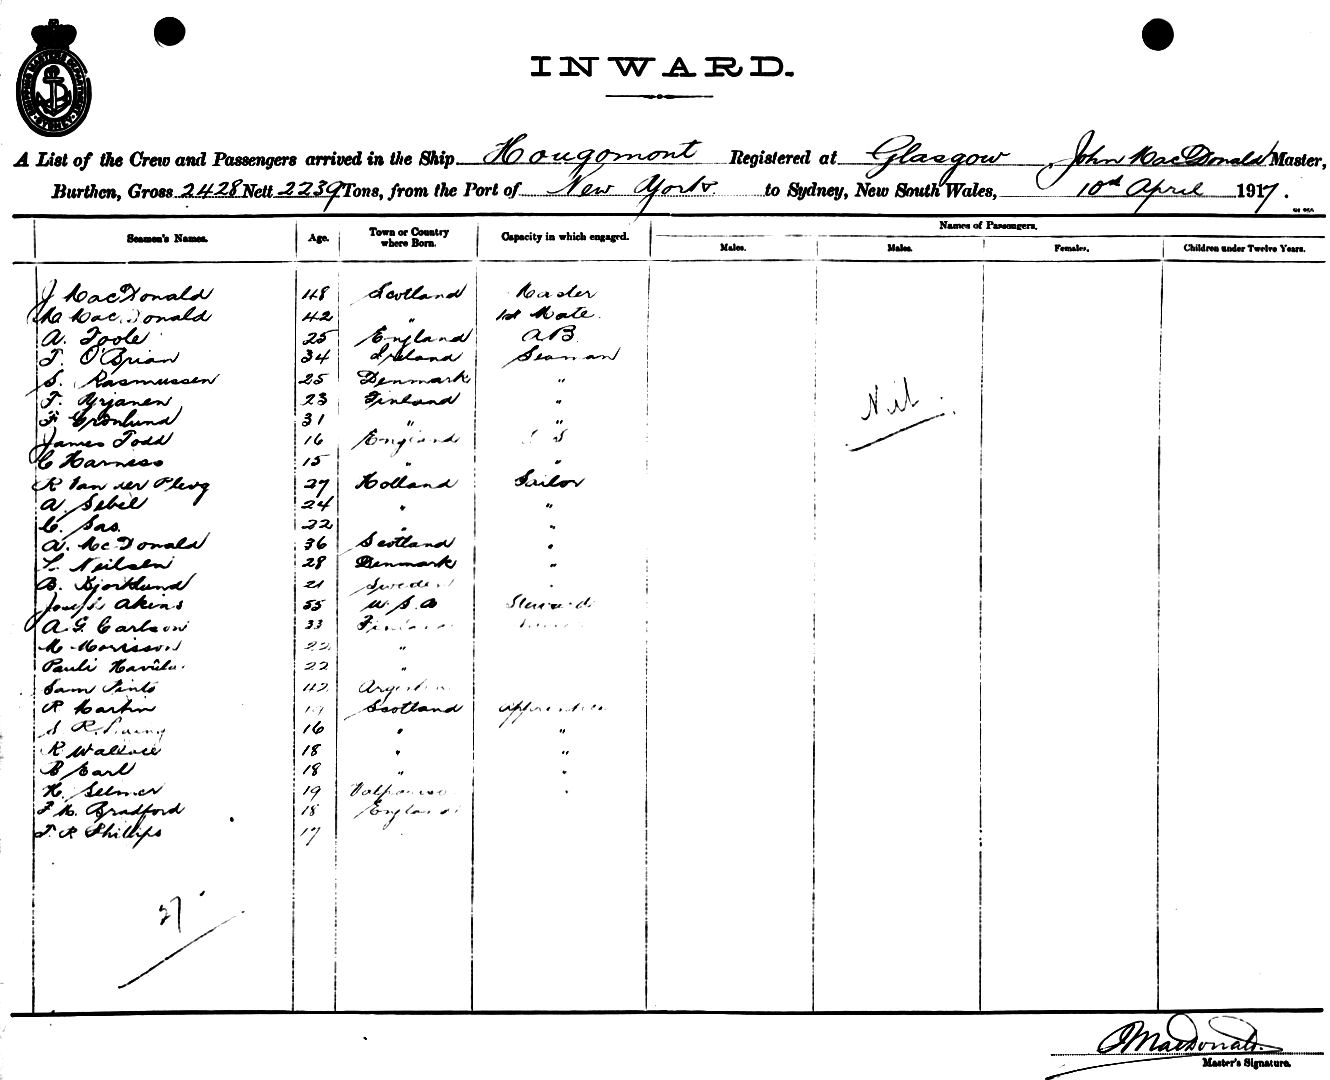 INWARD.
A List of the Crew and Passengers arrived in the Ship Hougomont Registered at Glasgow John MacDonald Master,
Burthen, Gross 2428 Nett 2239 Tons, from the Port of New York to Sydney, New South Wales, 10th April 1917.
Seamen's Names. Age. Town or Country where Born. Capacity in which engaged. Names of Passengers.
Males. Males. Females. Children under Twelve Years.
J MacDonald 48 Scotland Master
M MacDonald 42 " 1st Mate.
A. Toole 25 England AB.
T. O'Brian 34 Ireland Seaman
S. Rasmussen 25 Denmark "
T. Yrjanen 23 Finland "
Nil.
F. Gronlund 31 " "
James Todd 16 England S
C Harness 15 " "
R Van der Ploeg 27 Holland Sailor
A. Sebel 24 " "
C. Sas. 22 " "
A. McDonald 36 Scotland "
L. Neilsen 28 Denmark "
B. Bjorklund 21 Sweden "
Joseph Akins 55 U.S.A Steward
A. G. Carlson 33 Finland
M. Morrisson 22 "
Pauli 22 "
Sam Pinto 42
R. Martin 19 Scotland Apprentice
S R. 16 " "
R Wallace 18 " "
B Earl 18 " "
H. Selmer 19 Valparaiso "
F. M. Bradford 18 England
T. R Phillips 17
27
J MacDonald.
Master's Signature.